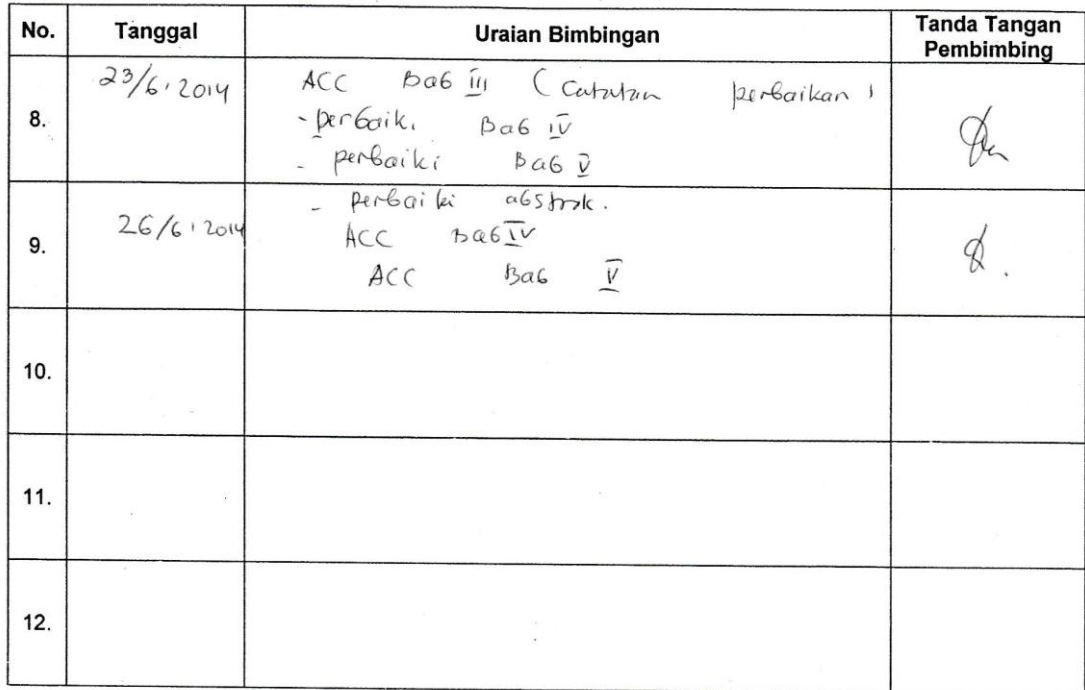 No. Tanggal Uraian Bimbingan Tanda Tangan Pembimbing
8. 23/6.2014 ACC Bab III ( Catatan perbaikan )
- perbaiki Bab IV
- perbaiki Bab V
9. 26/6.2014 - perbaiki abstrak.
ACC Bab IV
ACC Bab V
10.
11.
12.